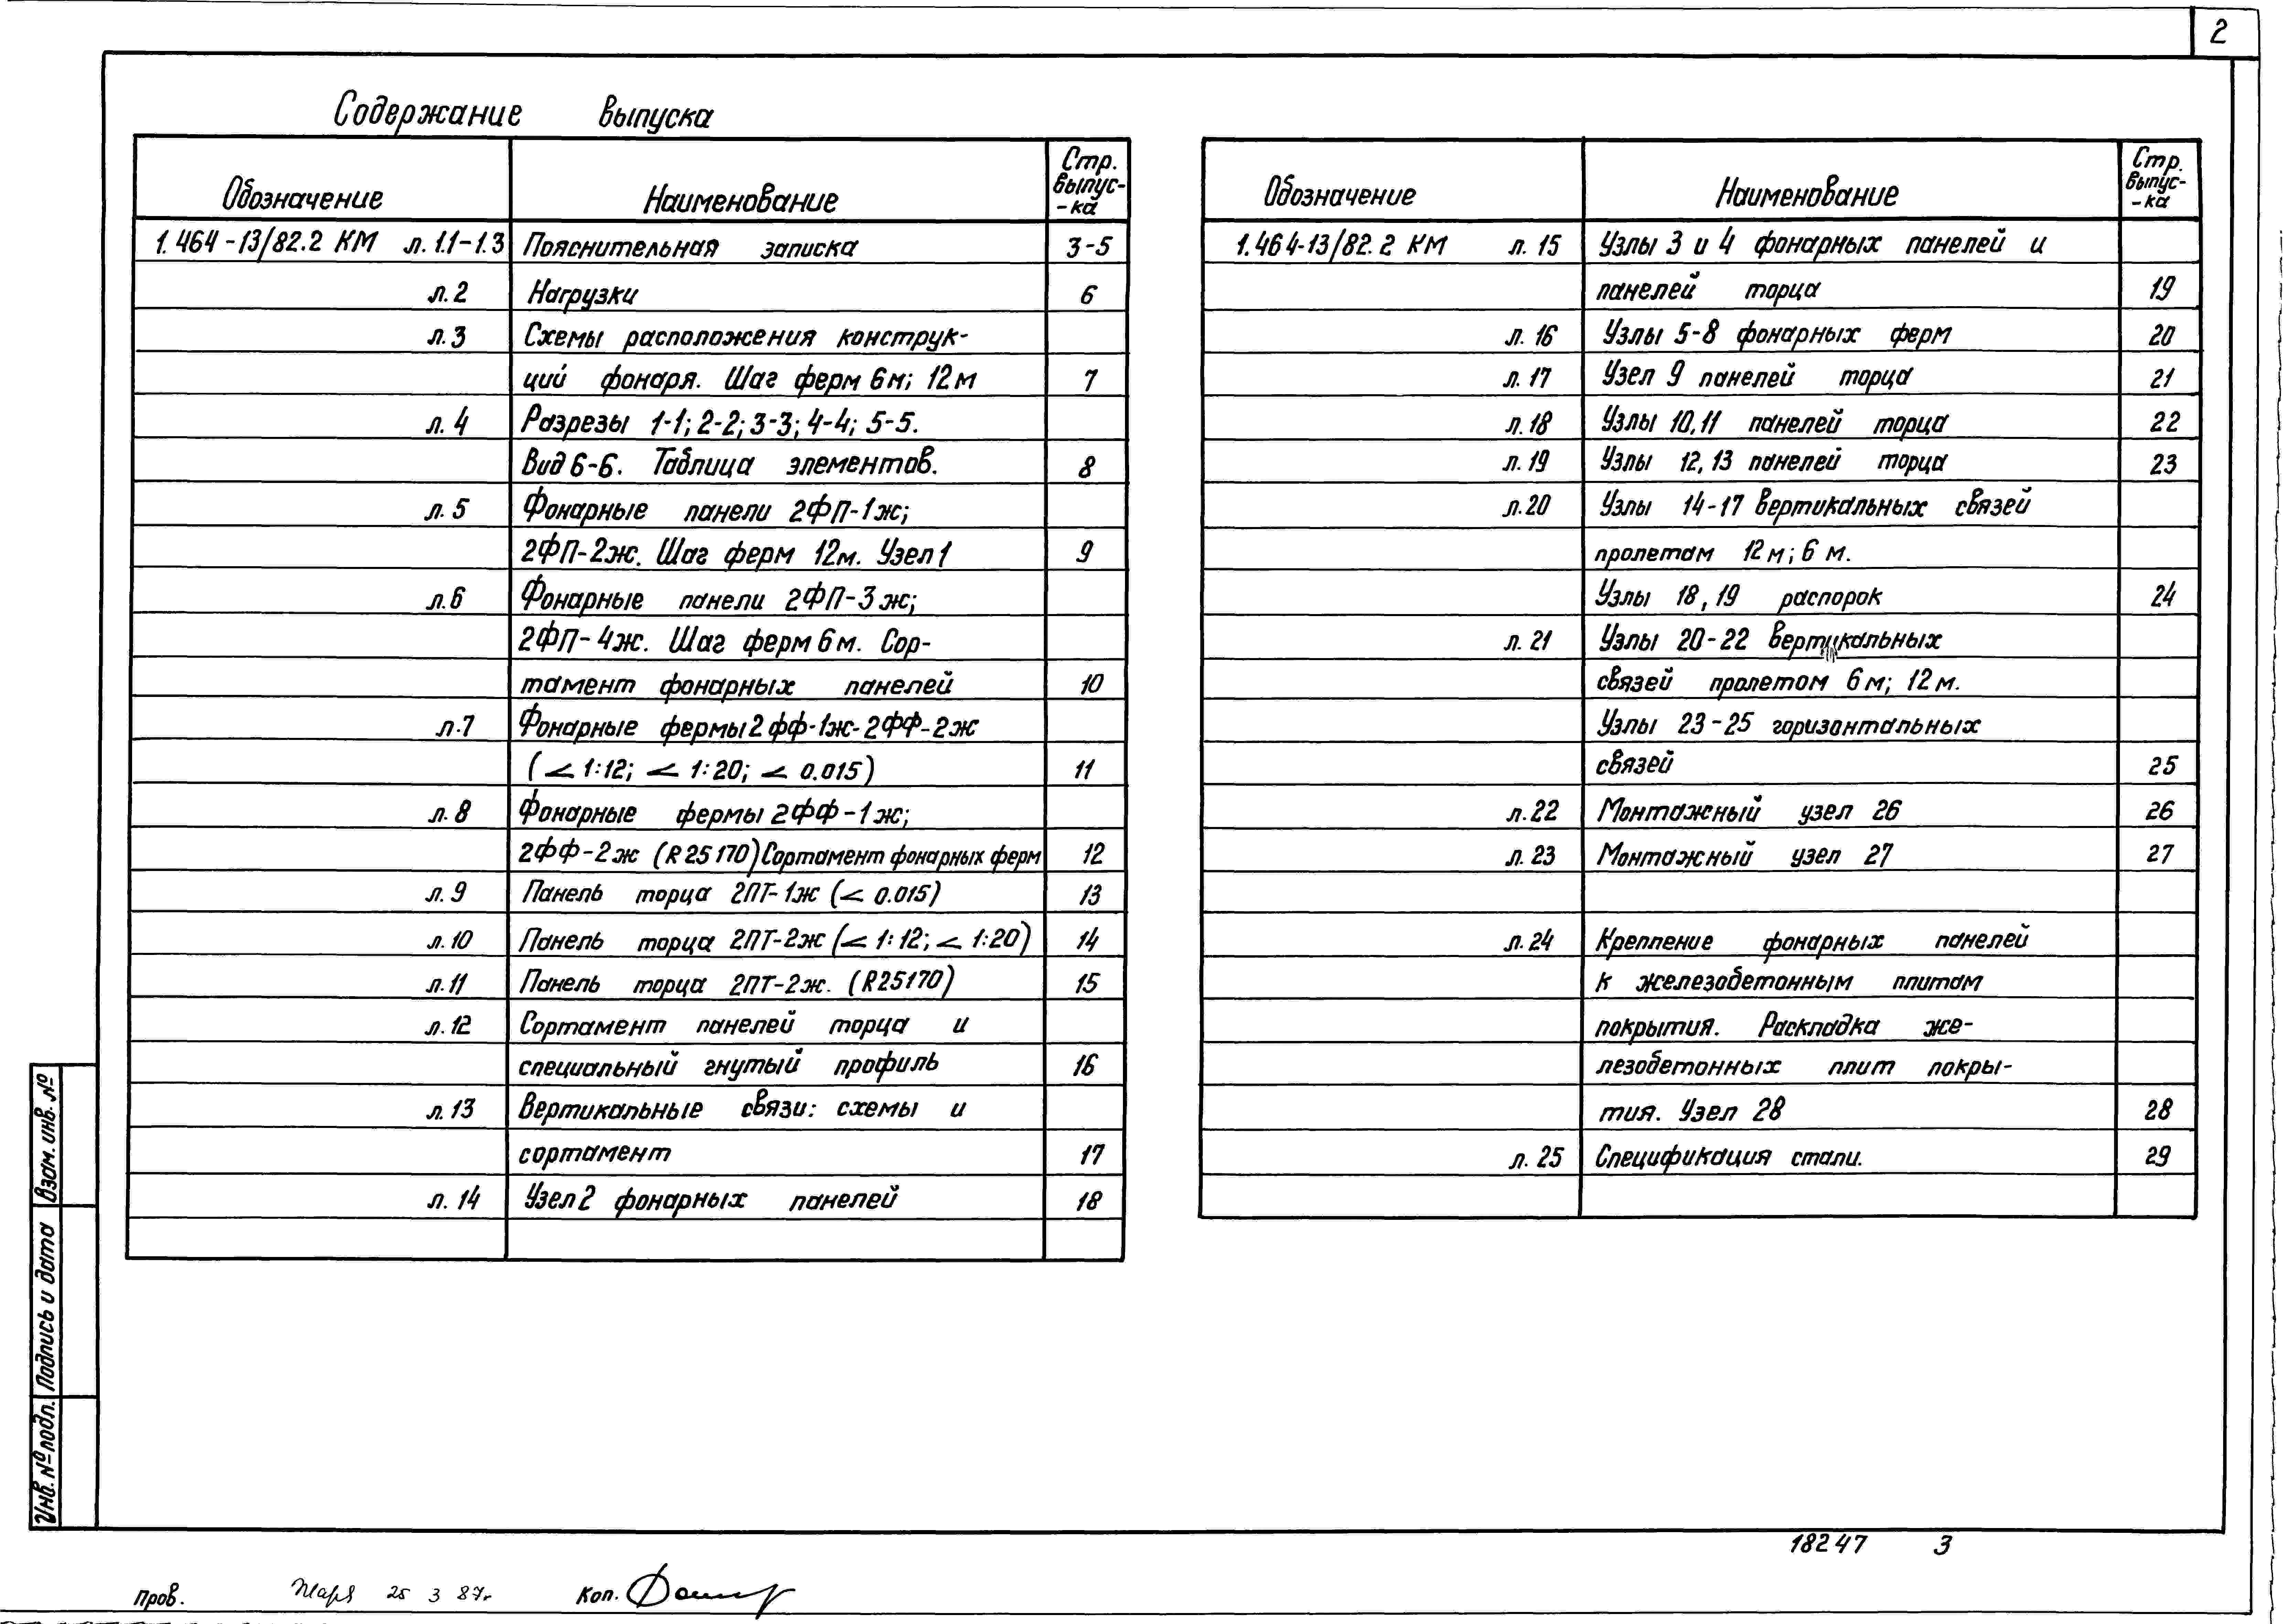 2
Содержание выпуска
Обозначение Наименование Стр. выпус- -ка
1.464-13/82.2 КМ л. 1.1-1.3 Пояснительная записка 3-5
л. 2 Нагрузки 6
л. 3 Схемы расположения конструк-
ций фонаря. Шаг ферм 6м; 12м 7
л. 4 Разрезы 1-1; 2-2; 3-3; 4-4; 5-5.
Вид 6-6. Таблица элементов. 8
л. 5 Фонарные панели 2ФП-1ж;
2ФП-2ж. Шаг ферм 12м. Узел 1 9
л. 6 Фонарные панели 2ФП-3ж;
2ФП-4ж. Шаг ферм 6м. Сор-
тамент фонарных панелей 10
л. 7 Фонарные фермы 2фф-1ж-2ФФ-2ж
(< 1:12; < 1:20; < 0.015) 11
л. 8 Фонарные фермы 2ФФ-1ж;
2ФФ-2ж (R 25170) Сортамент фонарных ферм 12
л. 9 Панель торца 2ПТ-1ж (< 0.015) 13
л. 10 Панель торца 2ПТ-2ж (< 1:12; < 1:20) 14
л. 11 Панель торца 2ПТ-2ж. (R25170) 15
л. 12 Сортамент панелей торца и
специальный гнутый профиль 16
л. 13 Вертикальные связи: схемы и
сортамент 17
л. 14 Узел 2 фонарных панелей 18
Обозначение Наименование Стр. выпус- -ка
1.464-13/82.2 КМ л. 15 Узлы 3 и 4 фонарных панелей и
панелей торца 19
л. 16 Узлы 5-8 фонарных ферм 20
л. 17 Узел 9 панелей торца 21
л. 18 Узлы 10,11 панелей торца 22
л. 19 Узлы 12,13 панелей торца 23
л. 20 Узлы 14-17 вертикальных связей
пролетам 12м; 6 м.
Узлы 18, 19 распорок 24
л. 21 Узлы 20-22 вертикальных
связей пролетом 6м; 12м.
Узлы 23-25 горизонтальных
связей 25
л. 22 Монтажный узел 26 26
л. 23 Монтажный узел 27 27
л. 24 Крепление фонарных панелей
к железобетонным плитам
покрытия. Раскладка же-
лезобетонных плит покры-
тия. Узел 28 28
л. 25 Спецификация стали. 29
Инв. № подл. Подпись и дата Взам. инв. №
18247 3
Пров. 25 3 87г Коп.